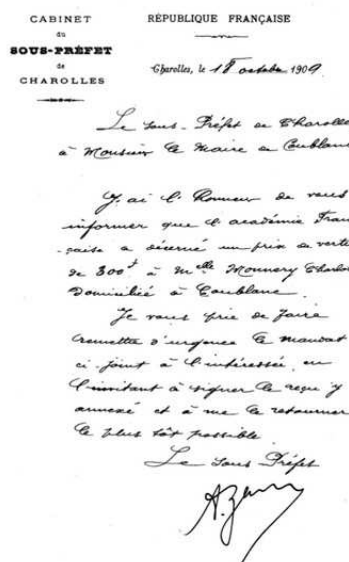 CABINET
du
SOUS-PRÉFET
de
CHAROLLES
RÉPUBLIQUE FRANÇAISE
Charolles, le 18 octobre 1909
Le Sous-Préfet de Charolles
à Monsieur le Maire de Coublanc
J'ai l'honneur de vous
informer que l'académie Fran-
çaise a décerné un prix de vertu
de 300f à Melle Monnery Charlo
Domiciliée à Coublanc.
Je vous prie de faire
remettre d'urgence le mandat
ci-joint à l'intéressée, en
l'invitant à signer le reçu y
annexé et à me le retourner
le plus tôt possible
Le Sous Préfet